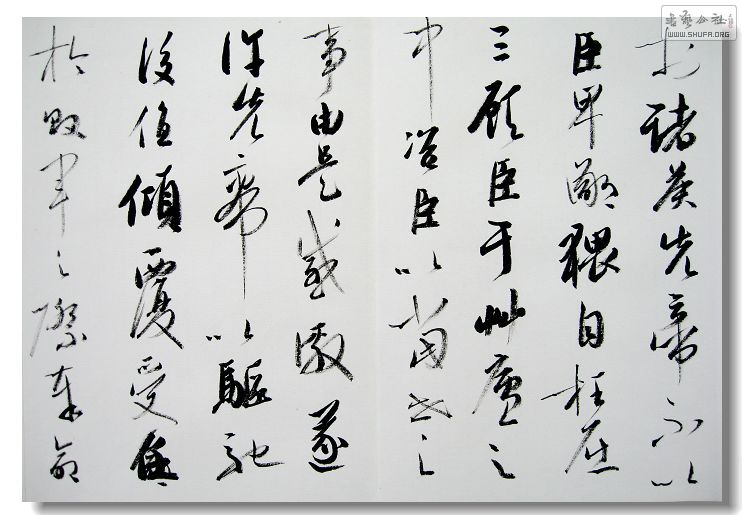 於諸侯先帝不以
臣卑鄙猥自枉屈
三顧臣于艸廬之
中咨臣以當世之
事由是感激遂
許先帝以驅馳
後值傾覆受任
於敗軍之際奉命
書藝公社
WWW.SHUFA.ORG